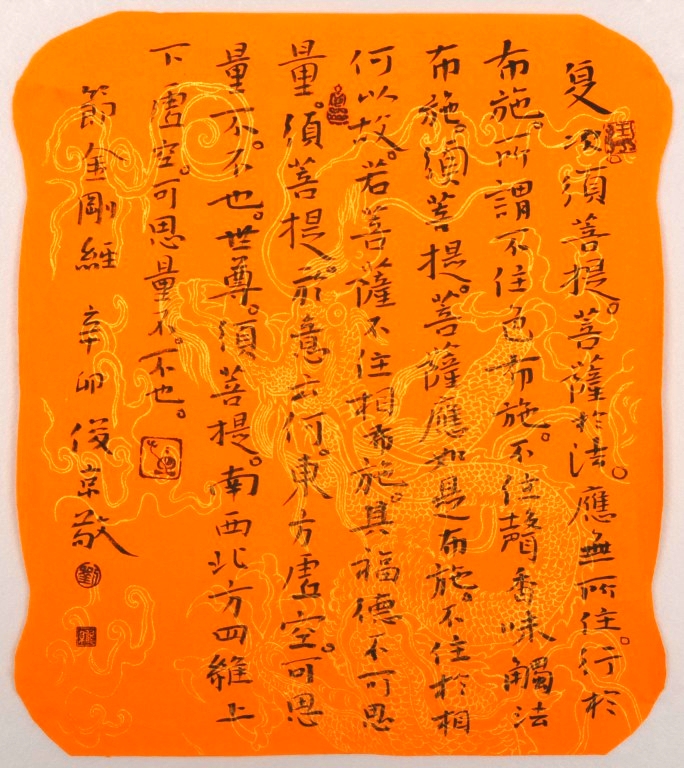 复次須菩提。菩薩於法。應無所住。行於
布施。所謂不住色布施。不住聲香味觸法
布施。須菩提。菩薩應如是布施。不住於相
何以故。若菩薩不住相布施。其福德不可思
量。須菩提。於意云何。東方虛空。可思
量不。不也。世尊。須菩提。南西北方四維上
下虛空。可思量不。不也。
節金剛經 辛卯 俊京敬